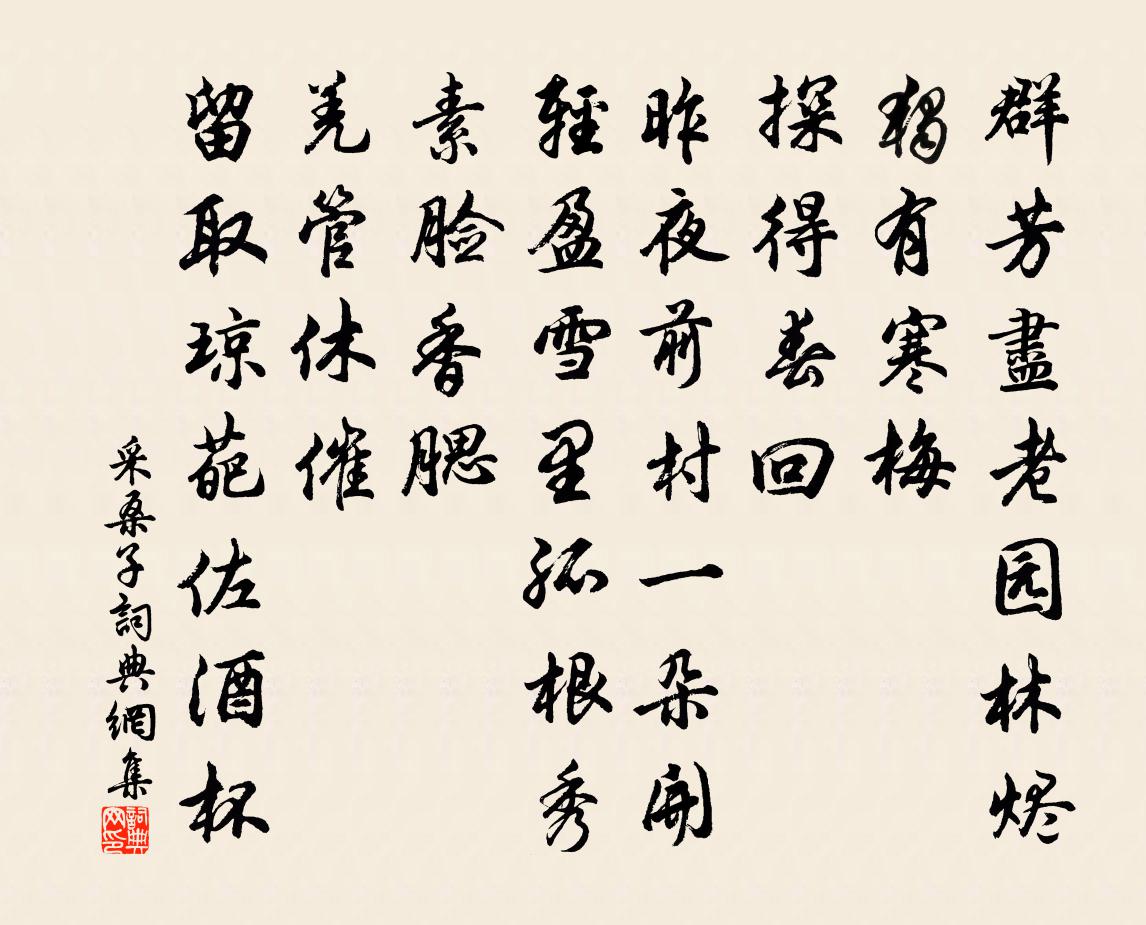 群芳盡老园林烬
獨有寒梅
探得春回
昨夜前村一朵開
輕盈雪里孤根秀
素脸香腮
羌管休催
留取琼葩佐酒杯
采桑子詞典網集
詞典网印